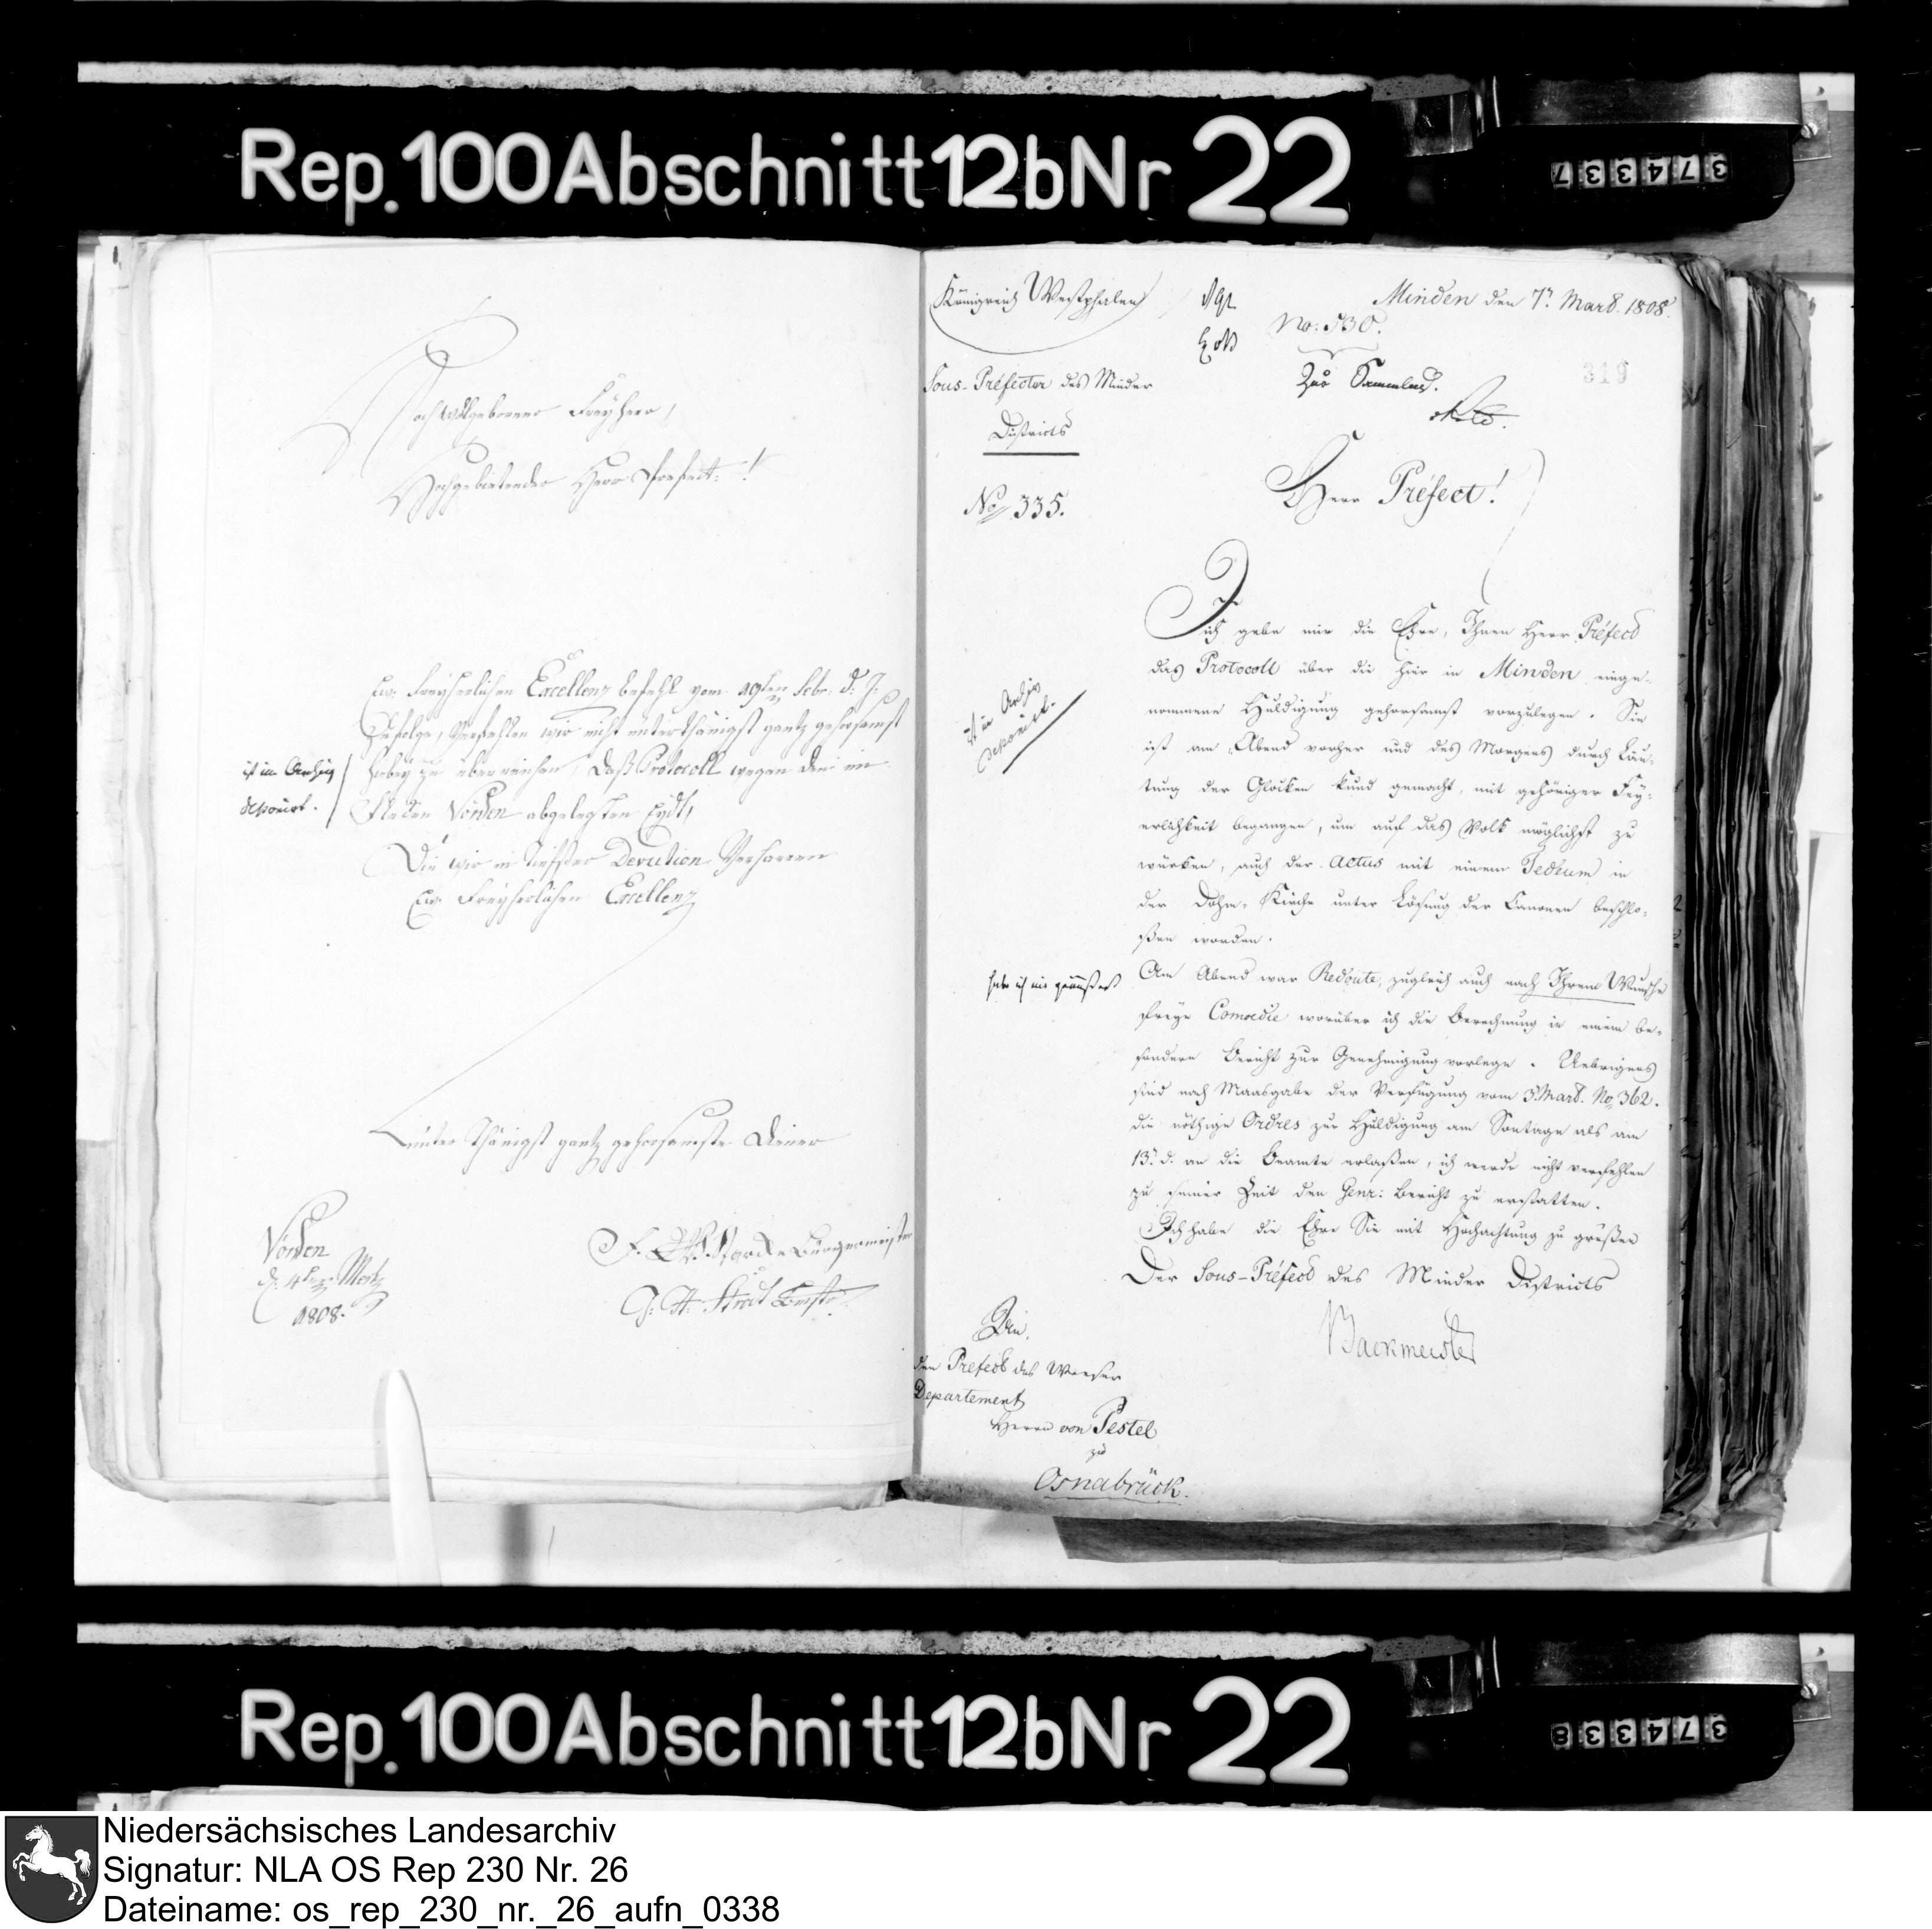 Rep. 100 Abschnitt 12b Nr 22
374337
Hochwohlgeborner Freyherr,
Hochgebietender Herr Præfect!
Ew. Freyherlichen Excellenz befehl vom 19ten Febr. d. J.
Zufolge, Verfehlen wir nicht unterthänigst gantz gehorsamst
hiebey zu überreichen, daß Protocoll wegen den im
Flecken Vörden abgelegten Eydt,
Die wir in tiefster Devotion Verharren
Ew. Freyherlichen Excellenz
ist im Archiv
deponirt.
unterthänigst gantz gehorsamste Diener
Vörden
d. 4ten Mertz
1808.
Bürgermeister
Königreich Westphalen
Sous-Préfectur des Minder
Districts
No 335.
Minden den 7n Mart. 1808.
No. 530.
Zur Sammlung.
319
Herr Préfect!
Ich gebe mir die Ehre, Ihnen Herr Préfect
das Protocoll über die hier in Minden einge-
nommene Huldigung gehorsamst vorzulegen. Sie
ist am Abend vorher und des Morgens durch Läu-
tung der Glocken kund gemacht, mit gehöriger Fey-
erlichkeit begangen, um auf das Volk möglichst zu
würken, auch der Actus mit einem Tedeum in
der Dohm-Kirche unter Lösung der Canonen beschlo-
ßen worden.
ist im Archiv
deponirt.
Am Abend war Redoute, zugleich auch nach Ihrem Wunsche
freye Comoedie worüber ich die Berechnung in einem be-
sondern Bericht zur Genehmigung vorlege. Uebrigens
sind nach Maasgabe der Verfügung vom 3. Mart. No 362.
die nöthige Ordres zur Huldigung am Sontage als am
13. d. an die Beamte erlaßen, ich werde nicht verfehlen
zu seiner Zeit den Genr: Bericht zu erstatten.
habe ich nie geäußert
Ich habe die Ehre Sie mit Hochachtung zu grüßen
Der Sous-Préfect des Minder Districts
Backmeister
An
den Prefect des Weeser
Departement
Herrn von Pestel
zu
Osnabrück.
Rep. 100 Abschnitt 12b Nr 22
374338
Niedersächsisches Landesarchiv
Signatur: NLA OS Rep 230 Nr. 26
Dateiname: os_rep_230_nr._26_aufn_0338